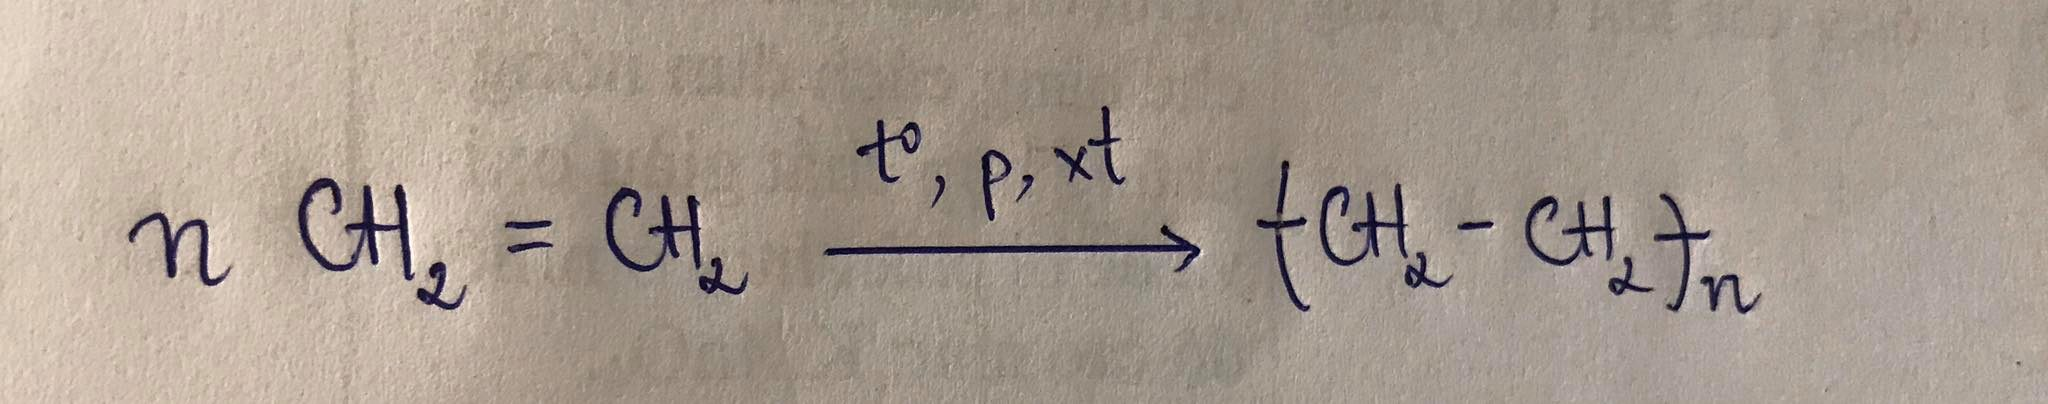 n CH₂ = CH₂ —t°, p, xt→ (CH₂ - CH₂)ₙ